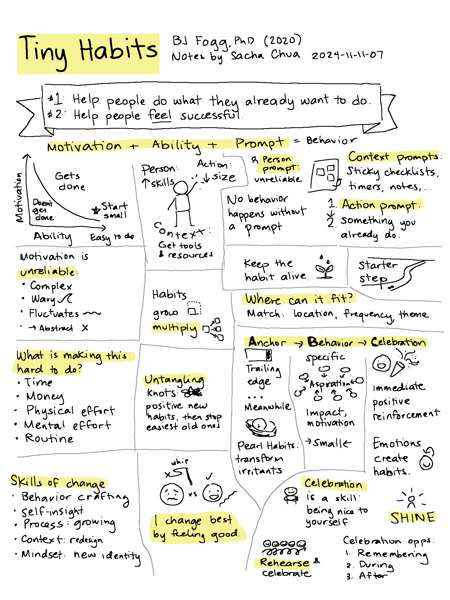 Tiny Habits
BJ Fogg, PhD (2020)
Notes by Sacha Chua 2024-11-11-07
#1: Help people do what they already want to do.
#2: Help people feel successful.
Motivation + Ability + Prompt = Behavior
Motivation
Gets
done
Doesn't
get
done
Start
small
Ability
Easy to do
Person:
↑ skills
Action:
↓ size
Context:
Get tools
& resources
Person
prompt:
unreliable
No behavior
happens without
a prompt
Context prompts:
Sticky checklists,
timers, notes,...
Action prompt:
1
2
something you
already do.
Motivation is
unreliable:
• Complex
• Wavy
• Fluctuates
• → Abstract X
Habits
grow
multiply
Keep the
habit alive
Starter
step
Where can it fit?
Match: location, frequency, theme
What is making this
hard to do?
• Time
• Money
• Physical effort
• Mental effort
• Routine
Untangling
knots:
positive new
habits, then stop
easiest old ones
Anchor → Behavior → Celebration
Trailing
edge
...
Meanwhile
Pearl Habits:
transform
irritants
specific
Aspiration
Impact,
motivation
→ smaller
Immediate
positive
reinforcement
Emotions
create
habits.
Skills of change
• Behavior crafting
• Self-insight
• Process: growing
• Context: redesign
• Mindset: new identity
whip
vs
I change best
by feeling good.
Celebration
is a skill:
being nice to
yourself
SHINE
Rehearse &
celebrate
Celebration opps:
1. Remembering
2. During
3. After